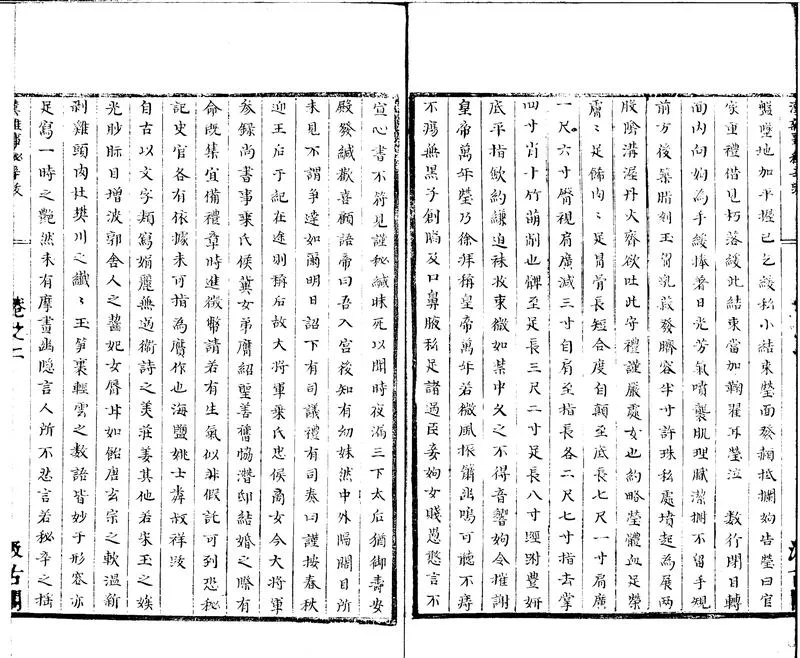 盤墜地加平握已之緩私小結束瑩面發赬抵攔姁告瑩曰官
家重禮借見朽落緩此結束當加鞠翟耳瑩泣 數行閉目轉
面內向姁為手緩捧著日光芳氣噴襲肌理膩潔捬不留手規
前方後築脂刻玉胷乳菽發臍容半寸許珠私處墳起為展兩
股陰溝渥丹火齊欲吐此守禮謹嚴處女也約略瑩體血足榮
膚〻足飾肉〻足冒骨長短合度自顛至底長七尺一寸肩廣
一尺六寸臀視肩廣減三寸自肩至指長各二尺七寸指去掌
四寸肖十竹萌削也髀至足長三尺二寸足長八寸脛跗豐妍
底平指斂約縑迫襪收束微如禁中久之不得音響姁令摧謝
皇帝萬年瑩乃徐拜稱皇帝萬年若微風振簫幽鳴可聽不痔
不瘍無黑子創陷及口鼻腋私足諸過臣妾姁女賤愚憨言不
汲古閣
宣心書不符見謹秘緘昧死以聞時夜漏三下太后猶御壽安
殿發緘歡喜顧語帝曰吾入宮後知有幼妹然中外隔闊目所
未見不謂爭達如爾明日詔下有司議禮有司奏曰謹按春秋
迎王后于紀在途則稱后故大將軍乘氏忠侯商女今大將軍
參錄尚書事乘氏侯冀女弟膺紹聖善舊協潛邸結婚之際有
命既集宜備禮章時進徵幣請若有生氣似非假託可列恐秘
記史官各有依據未可指為贗作也海鹽姚士粦叔祥跋
自古以文字類寫娟麗無過衛詩之美莊姜其他若宋玉之娭
光眇眎目增波郭舍人之齧妃女唇甘如飴唐玄宗之軟溫新
剝雞頭肉杜樊川之纖〻玉筍裹輕雲之數語皆妙于形容亦
足寫一時之艷然未有摩畫幽隱言人所不忍言若秘辛之描
漢雜事秘辛跋
卷之二
汲古閣